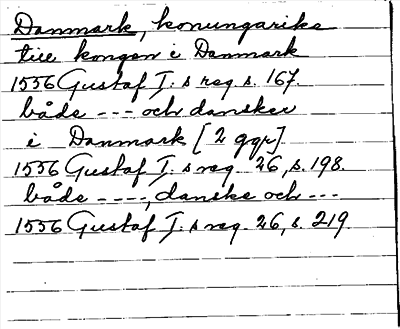 Danmark, konungarike
till kongen i Danmark
1556 Gustaf I:s reg s. 167.
både --- och dansker
i Danmark [2 ggr]
1556 Gustaf I:s reg. 26, s. 198.
både ----, danske och ---
1556 Gustaf I:s reg. 26, s. 219